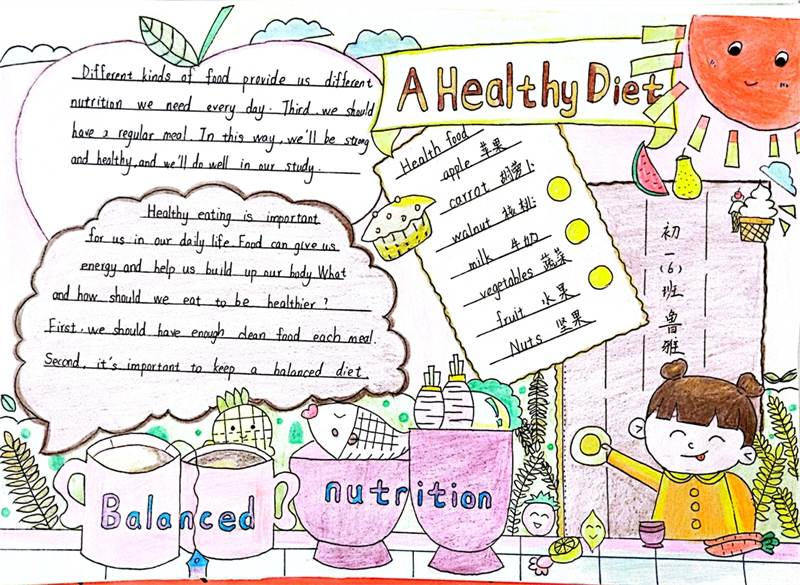 A Healthy Diet
Different kinds of food provide us different
nutrition we need every day. Third, we should
have a regular meal. In this way, we'll be strong
and healthy, and we'll do well in our study.
Healthy eating is important
for us in our daily life. Food can give us
energy and help us build up our body. What
and how should we eat to be healthier?
First, we should have enough clean food each meal.
Second, it's important to keep a balanced diet.
Health food
apple 苹果
carrot 胡萝卜
walnut 核桃
milk 牛奶
vegetables 蔬菜
fruit 水果
Nuts 坚果
初一(6)班 鲁班
Balanced nutrition